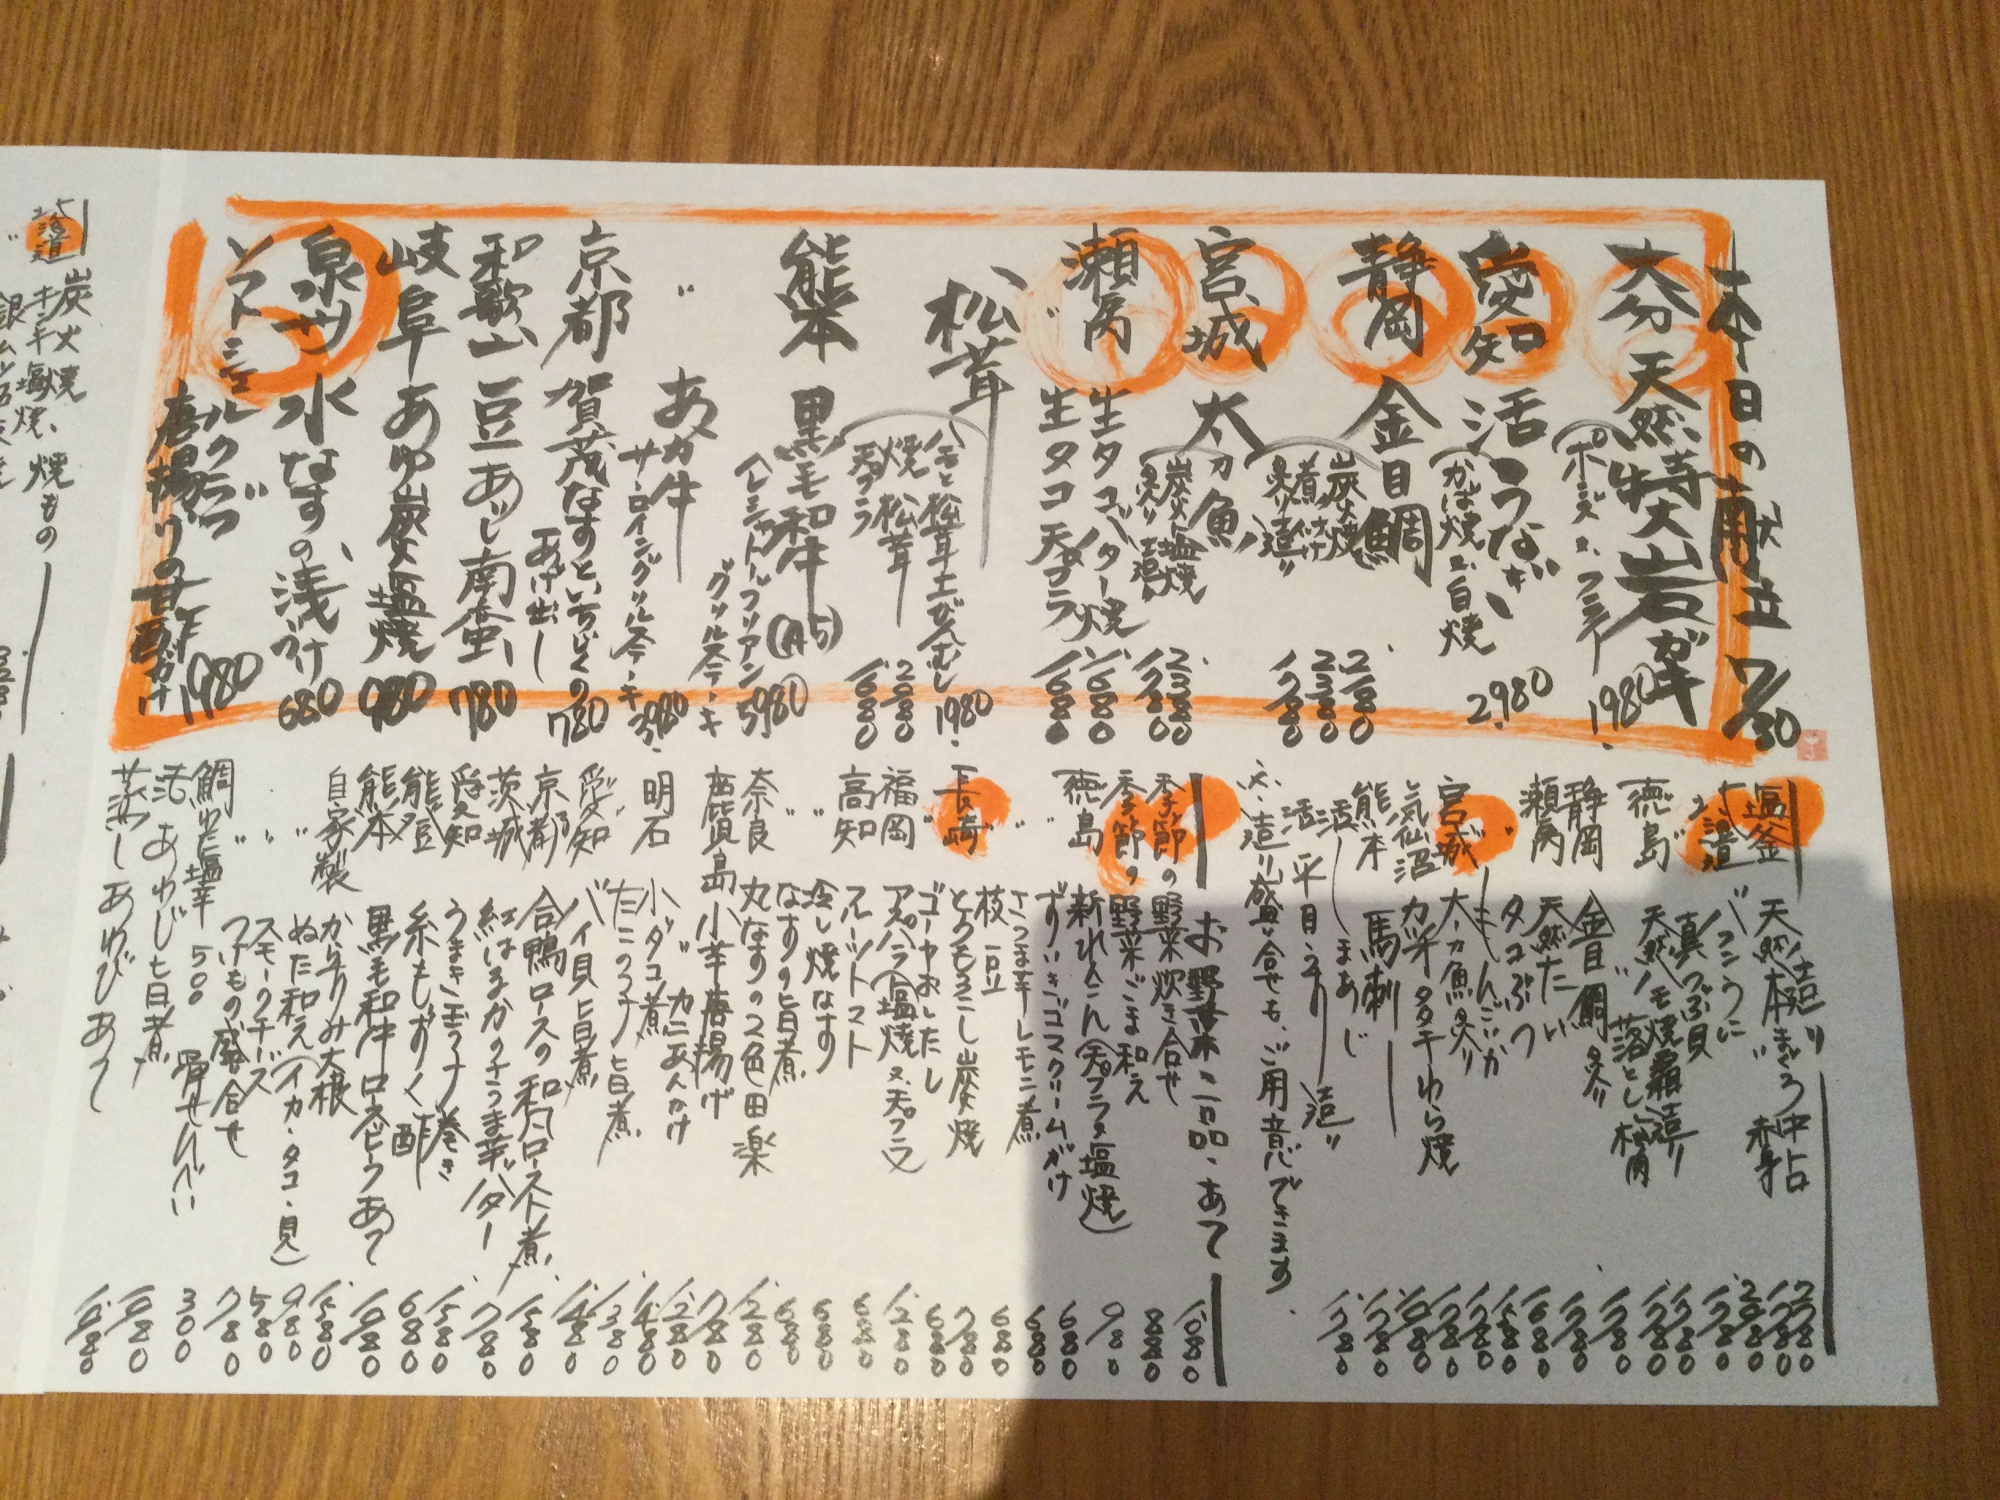 本日の献立 7/30
大分 天然特大岩ガキ
(ポン酢 又、フライ 1980
愛知 活うなぎ
(かば焼 又、白焼 2980
静岡 金目鯛
炭火焼 2180
煮付け 2380
炙り造り 1780
宮城 太刀魚
炭火塩焼 2380
炙り造り 1780
瀬戸内 生タコバター焼 1680
〃 生タコ天プラ 1680
松茸
ハモと松茸土びんむし 1980
焼松茸 2080
天プラ 1680
熊本 黒毛和牛(A5)
(シャトーブリアン
グリルステーキ 5980
〃 あか牛
サーロイングリルステーキ 3980
京都 賀茂なすといちじくの
あげ出し 780
和歌山 豆あじ南蛮 780
岐阜 あゆ炭火塩焼 980
泉州 水なすの浅づけ 680
ソフトシェルクラブ
唐揚りの甘酢がけ 1980
造り
塩釜 天然本まぐろ 中占 2780
赤身 1780
北海道 バフンうに 2980
〃 真つぶ貝 1780
徳島 天然ハモ焼霜造り 1780
〃 落とし梅肉 1780
静岡 金目鯛炙り 1780
瀬戸内 天然たい 1780
〃 タコぶつ 1680
宮城 太刀魚炙り 1780
気仙沼 カツオタタキわら焼 1280
熊本 馬刺し 1080
活しまあじ 1780
活平目うす造り 1780
又、造り盛り合せも、ご用意できます
お野菜・一品・あて
季節の野菜炊き合せ 1080
季節の野菜ごま和え 880
徳島 新れんこん(天プラ又塩焼) 980
〃 ずいきゴマクリームがけ 680
〃 さつま芋レモン煮 680
枝豆 680
長崎 とうもろこし炭焼 780
ゴーヤおしたし 680
福岡 アスパラ(塩焼又、天プラ) 1280
高知 フルーツトマト 680
〃 冷し焼なす 680
〃 なすの旨煮 680
奈良 丸なすの2色田楽 1280
鹿児島 小芋唐揚げ 780
〃 カニあんかけ 1280
明石 小ダコ煮 1480
〃 たこの子旨煮 1380
愛知 バイ貝旨煮 1480
京都 合鴨ロースの和风ロースト煮 1580
茨城 紅はるかのさつま芋バター 780
愛知 うまき玉子巻き 1580
能登 糸もずく酢 680
熊本 黒毛和牛ローストビーフあて 1080
自家製 からすみ大根 1580
〃 ぬた和え(イカ・タコ・貝) 980
〃 スモークチーズ 580
〃 つけもの盛合せ 780
骨せんべい 300
活あわび旨煮 1080
蒸しあわびあて 1080
北海道 炭火焼
キンキ塩焼
焼もの